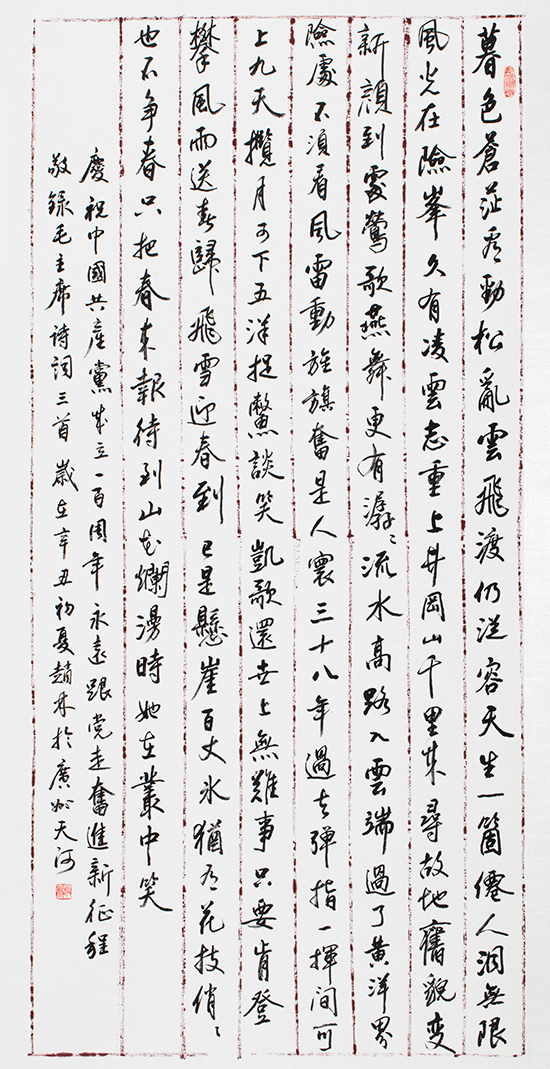 暮色蒼茫看勁松亂雲飛渡仍從容天生一箇僊人洞無限
風光在險峯久有凌雲志重上井岡山千里來尋故地舊貌變
新顏到處鶯歌燕舞更有潺々流水高路入雲端過了黃洋界
險處不須看風雷動旌旗奮是人寰三十八年過去彈指一揮間可
上九天攬月可下五洋捉鱉談笑凱歌還世上無難事只要肯登
攀風雨送春歸飛雪迎春到已是懸崖百丈冰猶有花枝俏々
也不爭春只把春來報待到山花爛漫時她在叢中笑
慶祝中國共產黨成立一百周年永遠跟党走奮進新征程
敬錄毛主席诗詞三首歲在辛丑初夏趙林於廣州天河